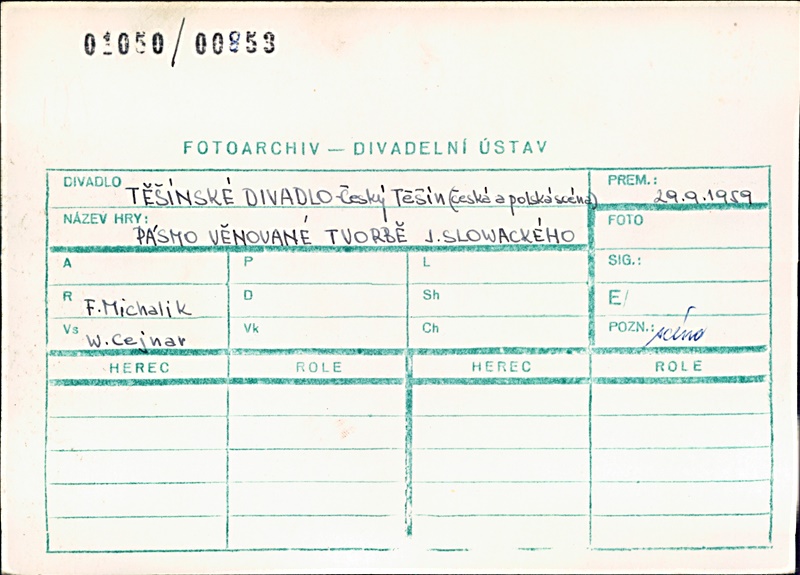 01050/00853
FOTOARCHIV — DIVADELNÍ ÚSTAV
DIVADLO TĚŠÍNSKÉ DIVADLO-Český Těšín (česká a polská scéna)
PREM.: 29.9.1959
NÁZEV HRY: PÁSMO VĚNOVANÉ TVORBĚ J. SLOWACKÉHO
FOTO
A P L SIG.:
R F. Michalik D Sh E/
Vs W. Cejnar Vk Ch POZN.:
HEREC ROLE HEREC ROLE